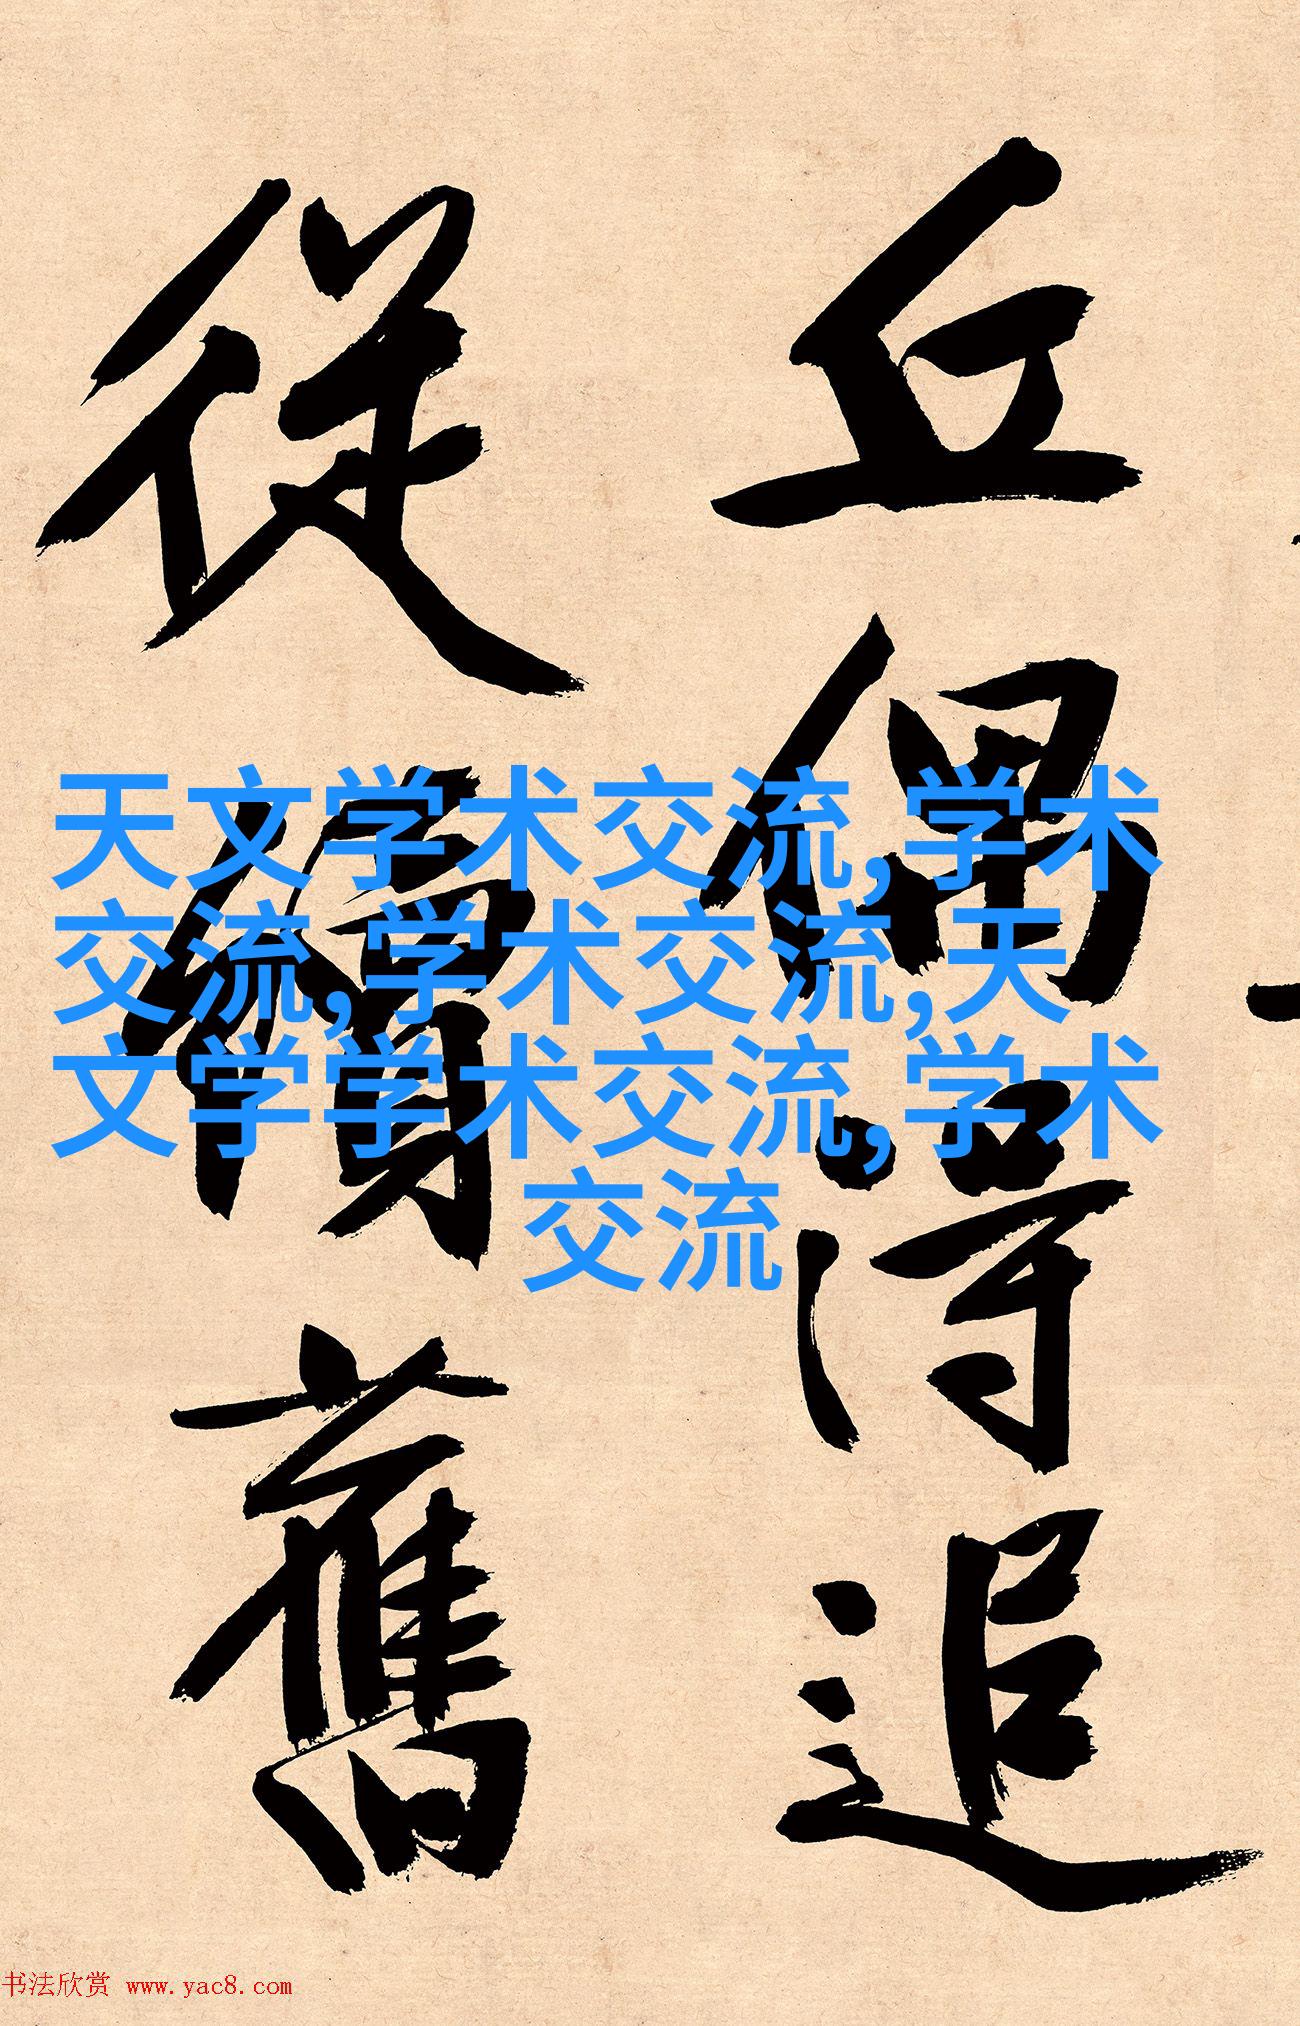 丘偶得追
從
舊
天文学术交流,学术
交流,学术交流,天
文学学术交流,学术
交流
书法欣赏 www.yac8.com